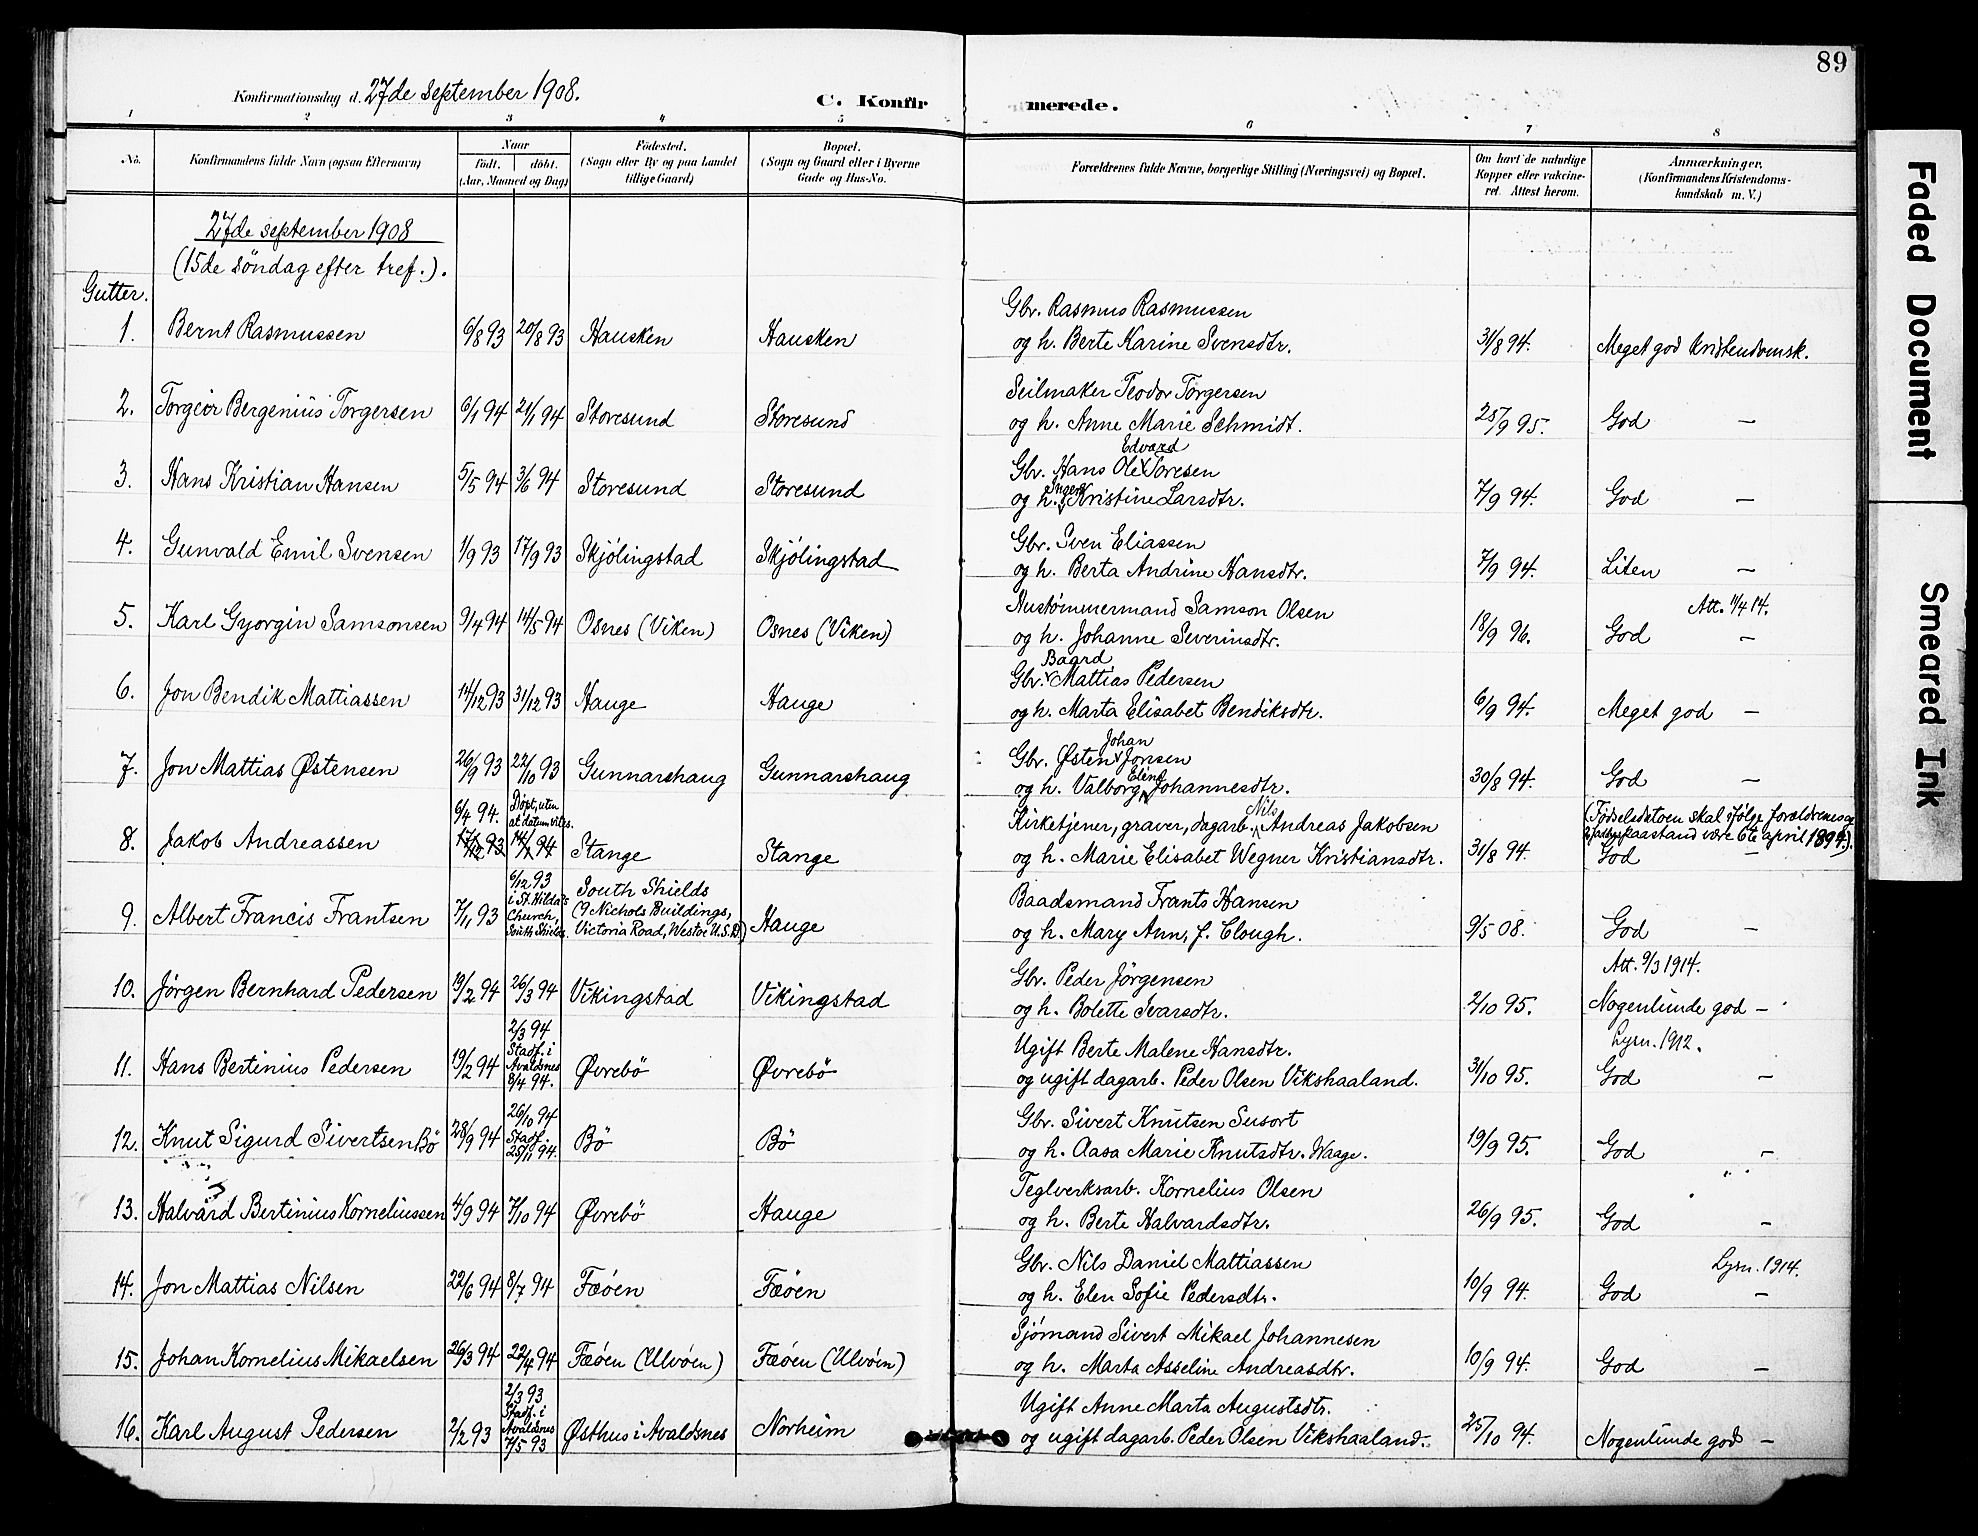 89
Konfirmationsdag d. 27de september 1908.
C. Konfirmerede.
1 2 3 4 5 6 7 8
No. Konfirmandens fulde Navn (ogsaa Efternavn) Naar født. døbt. (Aar, Maaned og Dag) Fødested. (Sogn eller By og paa Landet tillige Gaard) Bopæl. (Sogn og Gaard eller i Byerne Gade og Hus-No. Forældrenes fulde Navne, borgerlige Stilling (Næringsvei) og Bopæl. Om havt de naturlige Kopper eller vaccineret. Attest herom. Anmærkninger. (Konfirmandens Kristendomskundskab m. V.)
27de september 1908
(15de söndag efter tref.).
Gutter.
1. Bernt Rasmussen 6/8 93 20/8 93 Hausken Hausken Gbr. Rasmus Rasmussen
og h. Berte Karine Svensdtr. 31/8 94. Meget god kristendomsk.
2. Torgeir Bergenius Torgersen 6/1 94 21/1 94 Storesund Storesund Seilmaker Teodor Torgersen
og h. Anne Marie Schmidt. 25/9 95. God —
3. Hans Kristian Hansen 5/5 94 3/6 94 Storesund Storesund Gbr. Hans Ole Edvard Toresen
og h. Inger Kristine Larsdtr. 7/9 94. God —
4. Gunvald Emil Svensen 1/9 93 17/9 93 Skjölingstad Skjölingstad Gbr. Sven Eliassen
og h. Berta Andrine Hansdtr. 7/9 94. Liten —
5. Karl Gyorgin Samsonsen 9/4 94 14/5 94 Osnes (Viken) Osnes (Viken) Hustömmermand Samson Olsen Att. 11/4 14.
og h. Johanne Severinsdtr. 18/9 96. God —
6. Jon Bendik Mattiassen 14/12 93 31/12 93 Hauge Hauge Gbr. Baard Mattias Pedersen
og h. Marta Elisabet Bendiksdtr. 6/9 94. Meget god —
7. Jon Mattias Østensen 26/9 93 22/10 93 Gunnarshaug Gunnarshaug Gbr. Østen Johan Jonsen
og h. Valborg Elene Johannesdtr. 30/8 94. God —
8. Jakob Andreassen 6/4 94. 17/12 93 Döpt, uten at datum vites. 14/1 94 Stange Stange Kirketjener, graver, dagarb. Nils Andreas Jakobsen (Födselsdatoen skal ifölge forældrenes og paastand være 6te april 1894).
og h. Marie Elisabet Wegner Kristiansdtr. 31/8 94. God —
9. Albert Francis Frantsen 7/11 93 6/12 93 i St. Hilda's Church, South Shields. South Shields (9 Nichols Buildings, Victoria Road, Westoe U.S.D.) Hauge Baadsmand Frants Hansen
og h. Mary Ann, f. Clough. 9/5 08. God —
10. Jørgen Bernhard Pedersen 19/2 94 26/3 94 Vikingstad Vikingstad Gbr. Peder Jörgensen Att. 9/3 1914.
og h. Bolette Ivarsdtr. 2/10 95. Nogenlunde god —
11. Hans Bertinius Pedersen 19/2 94 2/3 94 Stadf. i Avaldsnes 8/4 94. Øvrebö Øvrebö Ugift Berte Malene Hansdtr. Lysn. 1912.
og ugift dagarb. Peder Olsen Vikshaaland. 31/10 95. God —
12. Knut Sigurd Sivertsen Bö 28/9 94 26/10 94 Stadf. 25/11 94. Bö Bö Gbr. Sivert Knutsen Susort
og h. Aasa Marie Knutsdtr. Waage. 19/9 95. God —
13. Halvard Bertinius Korneliussen 4/9 94 7/10 94 Øvrebö Hauge Teglverksarb. Kornelius Olsen
og h. Berte Halvardsdtr. 26/9 95. God —
14. Jon Mattias Nilsen 22/6 94 8/7 94 Fæöen Fæöen Gbr. Nils Daniel Mattiassen Lysn. 1914.
og h. Elen Sofie Pedersdtr. 10/9 94. God —
15. Johan Kornelius Mikaelsen 26/3 94 22/4 94 Fæöen (Ulvöen) Fæöen (Ulvöen) Sjömand Sivert Mikael Johannesen
og h. Marta Asseline Andreasdtr. 10/9 94. God —
16. Karl August Pedersen 2/2 93 2/3 93 Stadf. i Avaldsnes 7/5 93 Østhus i Avaldsnes Norheim Ugift Anne Marta Augustsdtr.
og ugift dagarb. Peder Olsen Vikshaaland. 25/10 94. Nogenlunde god —
Faded Document
Smeared Ink